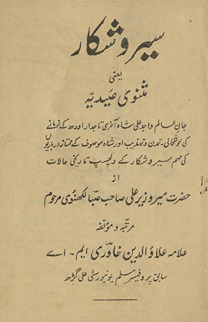 سیر و شکار
یعنی
مثنوی صیدیہ
جان عالم واجد علی شاہ آخری تاجدار اودھ کے زمانے
کی خوشحالی، تمدن و تہذیب اور شاہ موصوف کے ممتاز درباریوں
کی مہم سیر و شکار کے دلچسپ تاریخی حالات
از
حضرت میر وزیر علی صاحب صبا لکھنوی مرحوم
مرتبہ و مؤلفہ
علامہ علاؤ الدین خاوری ایم۔ اے
سابق پروفیسر مسلم یونیورسٹی علی گڑھ